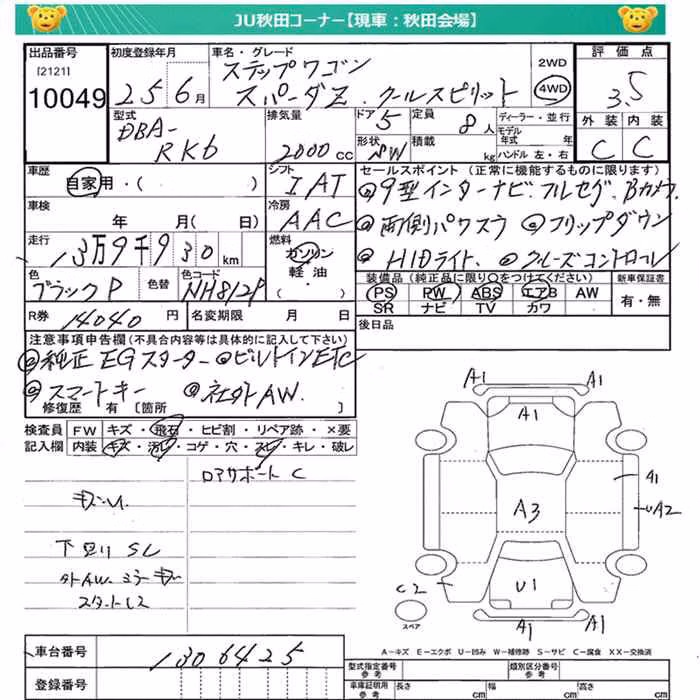 JU秋田コーナー【現車：秋田会場】
出品番号
[2121]
10049
初度登録年月
25 6月
車名・グレード
ステップワゴン
スパーダZ．クールスピリット
2WD
4WD
評価点
3.5
外装 内装
C C
型式
DBA-
RK6
排気量
2000 cc
ドア
5
形状
SW
定員
8人
積載
kg
ディーラー・並行
モデル年式 年
ハンドル 左・右
車歴
自家用・( )
シフト
IAT
車検
年 月( 日)
冷房
AAC
走行
13万9千930km
燃料
ガソリン
軽油
・( )
色
ブラックP
色替
色コード
NH812P
R券
14040円
名変期限 月 日
セールスポイント (正常に機能するものに限ります)
◎9型インターナビ．フルセグ．Bカメラ．
◎両側パワスラ ◎フリップダウン
◎HIDライト． ◎クルーズコントロール
装備品 (純正品に限り○をつけてください)
PS PW ABS エアB AW
SR ナビ TV カワ
新車保証書
有・無
後日品
注意事項申告欄 (不具合内容等は具体的に記入して下さい)
◎純正EGスターター ◎ビルトインETC
◎スマートキー ◎社外AW．
修復歴 有 [箇所 ]
検査員記入欄
FW キズ・飛石・ヒビ割・リペア跡・×要
内装 キズ・汚レ・コゲ・穴・スレ・キレ・破レ
ロアサポート C
下廻り SL
外AW．ミラーキズ
A1 A1
A1
A1
UA2
A3
U1
C2
A1 A1
スペア
A－キズ E－エクボ U－凹み W－補修跡 S－サビ C－腐食 XX－交換済
車台番号
1306425
登録番号
型式指定番号
参考
類別区分番号
参考
車庫証明用
参考
長さ cm
幅 cm
高さ cm